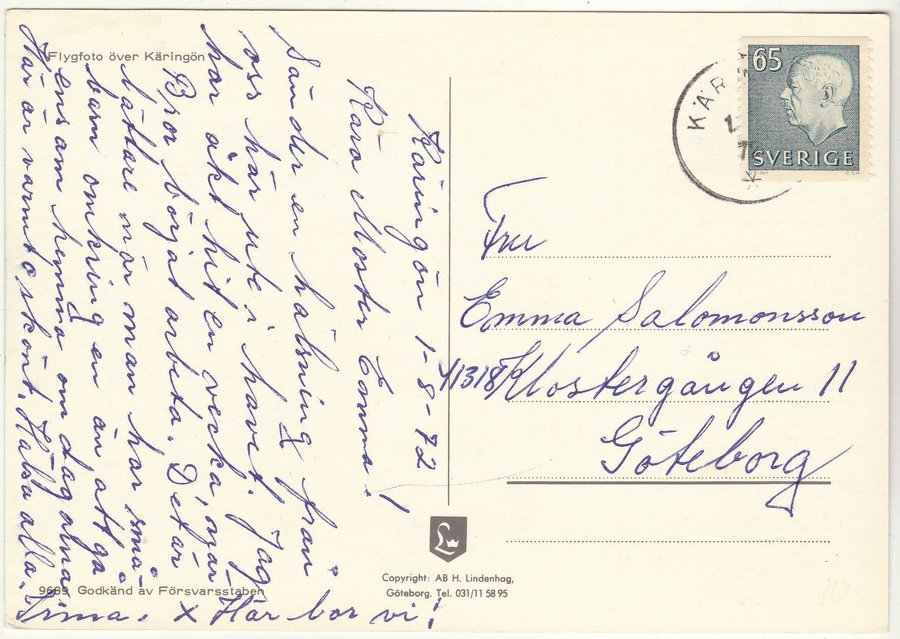 Flygfoto över Käringön
Käringön 1-8-72
Kära Moster Emma!
Sänder en hälsning från
oss här ute i havet. Jag
har åkt hit en vecka, när
Bror börjat arbeta. Det är
lättare när man har små-
barn omkring en än att gå
ensam hemma om dagarna
Här är varmt o skönt. Hälsa alla.
Irma. x Här bor vi!
9689 Godkänd av Försvarsstaben
Copyright: AB H. Lindenhag,
Göteborg. Tel. 031/11 58 95
65
SVERIGE
KÄR
Fru
Emma Salomonsson
41318 Klostergången 11
Göteborg